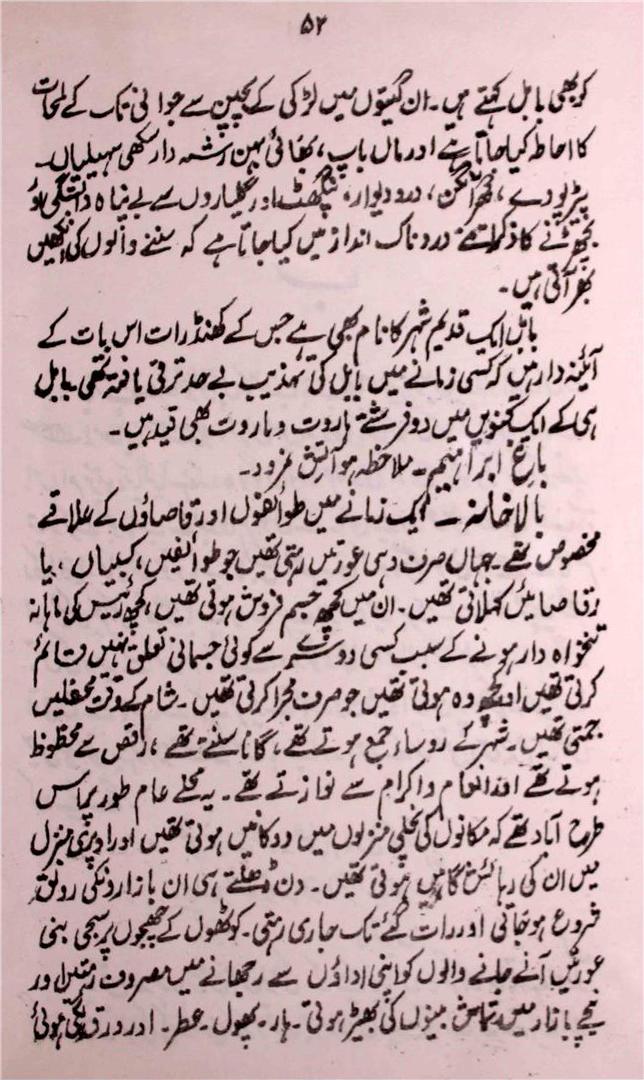 ۵۲
کو بھی بابل کہتے ہیں۔ ان گیتوں میں لڑکی کے بچپن سے جوانی تک کے لمحات
کا احاطہ کیا جاتا ہے اور ماں باپ، بھائی بہن رشتہ دار سکھی سہیلیاں۔
پیڑ پودے، گھر آنگن، در و دیوار، پنگھٹ اور گلیاروں سے بے پناہ وابستگی اور
بچھڑنے کا ذکر اتنے دردناک انداز میں کیا جاتا ہے کہ سننے والوں کی آنکھیں
بھر آتی ہیں۔
بابل ایک قدیم شہر کا نام بھی ہے جس کے کھنڈرات اس بات کے
آئینہ دار ہیں کہ کسی زمانے میں بابل کی تہذیب بے حد ترقی یافتہ تھی بابل
ہی کے ایک کنویں میں دو فرشتے ہاروت و ماروت بھی قید ہیں۔
باغِ ابراہیم۔ ملاحظہ ہو آتش نمرود۔
بالاخانہ ۔ ایک زمانے میں طوائفوں اور رقاصاؤں کے علاقے
مخصوص تھے۔ جہاں صرف وہی عورتیں رہتی تھیں جو طوائفیں، کسبیاں، یا
رقاصائیں کہلاتی تھیں۔ ان میں کچھ جسم فروش ہوتی تھیں، کچھ رئیس کی ماہانہ
تنخواہ دار ہونے کے سبب کسی دوسرے سے کوئی جسمانی تعلق نہیں قائم
کرتی تھیں اور کچھ وہ ہوتی تھیں جو صرف مجرا کرتی تھیں۔ شام کے وقت محفلیں
جمتی تھیں۔ شہر کے روساء جمع ہوتے تھے، گانا سنتے تھے، رقص سے محظوظ
ہوتے تھے اور انعام و اکرام سے نوازتے تھے۔ یہ محلے عام طور پر اس
طرح آباد تھے کہ مکانوں کی نچلی منزلوں میں دوکانیں ہوتی تھیں اور اوپری منزل
میں ان کی رہائش گاہیں ہوتی تھیں۔ دن ڈھلتے ہی ان بازاروں کی رونق
شروع ہو جاتی اور رات گئے تک جاری رہتی۔ کوٹھوں کے چھجوں پر سجی بنی
عورتیں آنے جانے والوں کو اپنی اداؤں سے رجھانے میں مصروف رہتیں اور
نیچے بازار میں تماش بینوں کی بھیڑ ہوتی۔ ہار۔ پھول۔ عطر۔ اور ورق لگی ہوئی